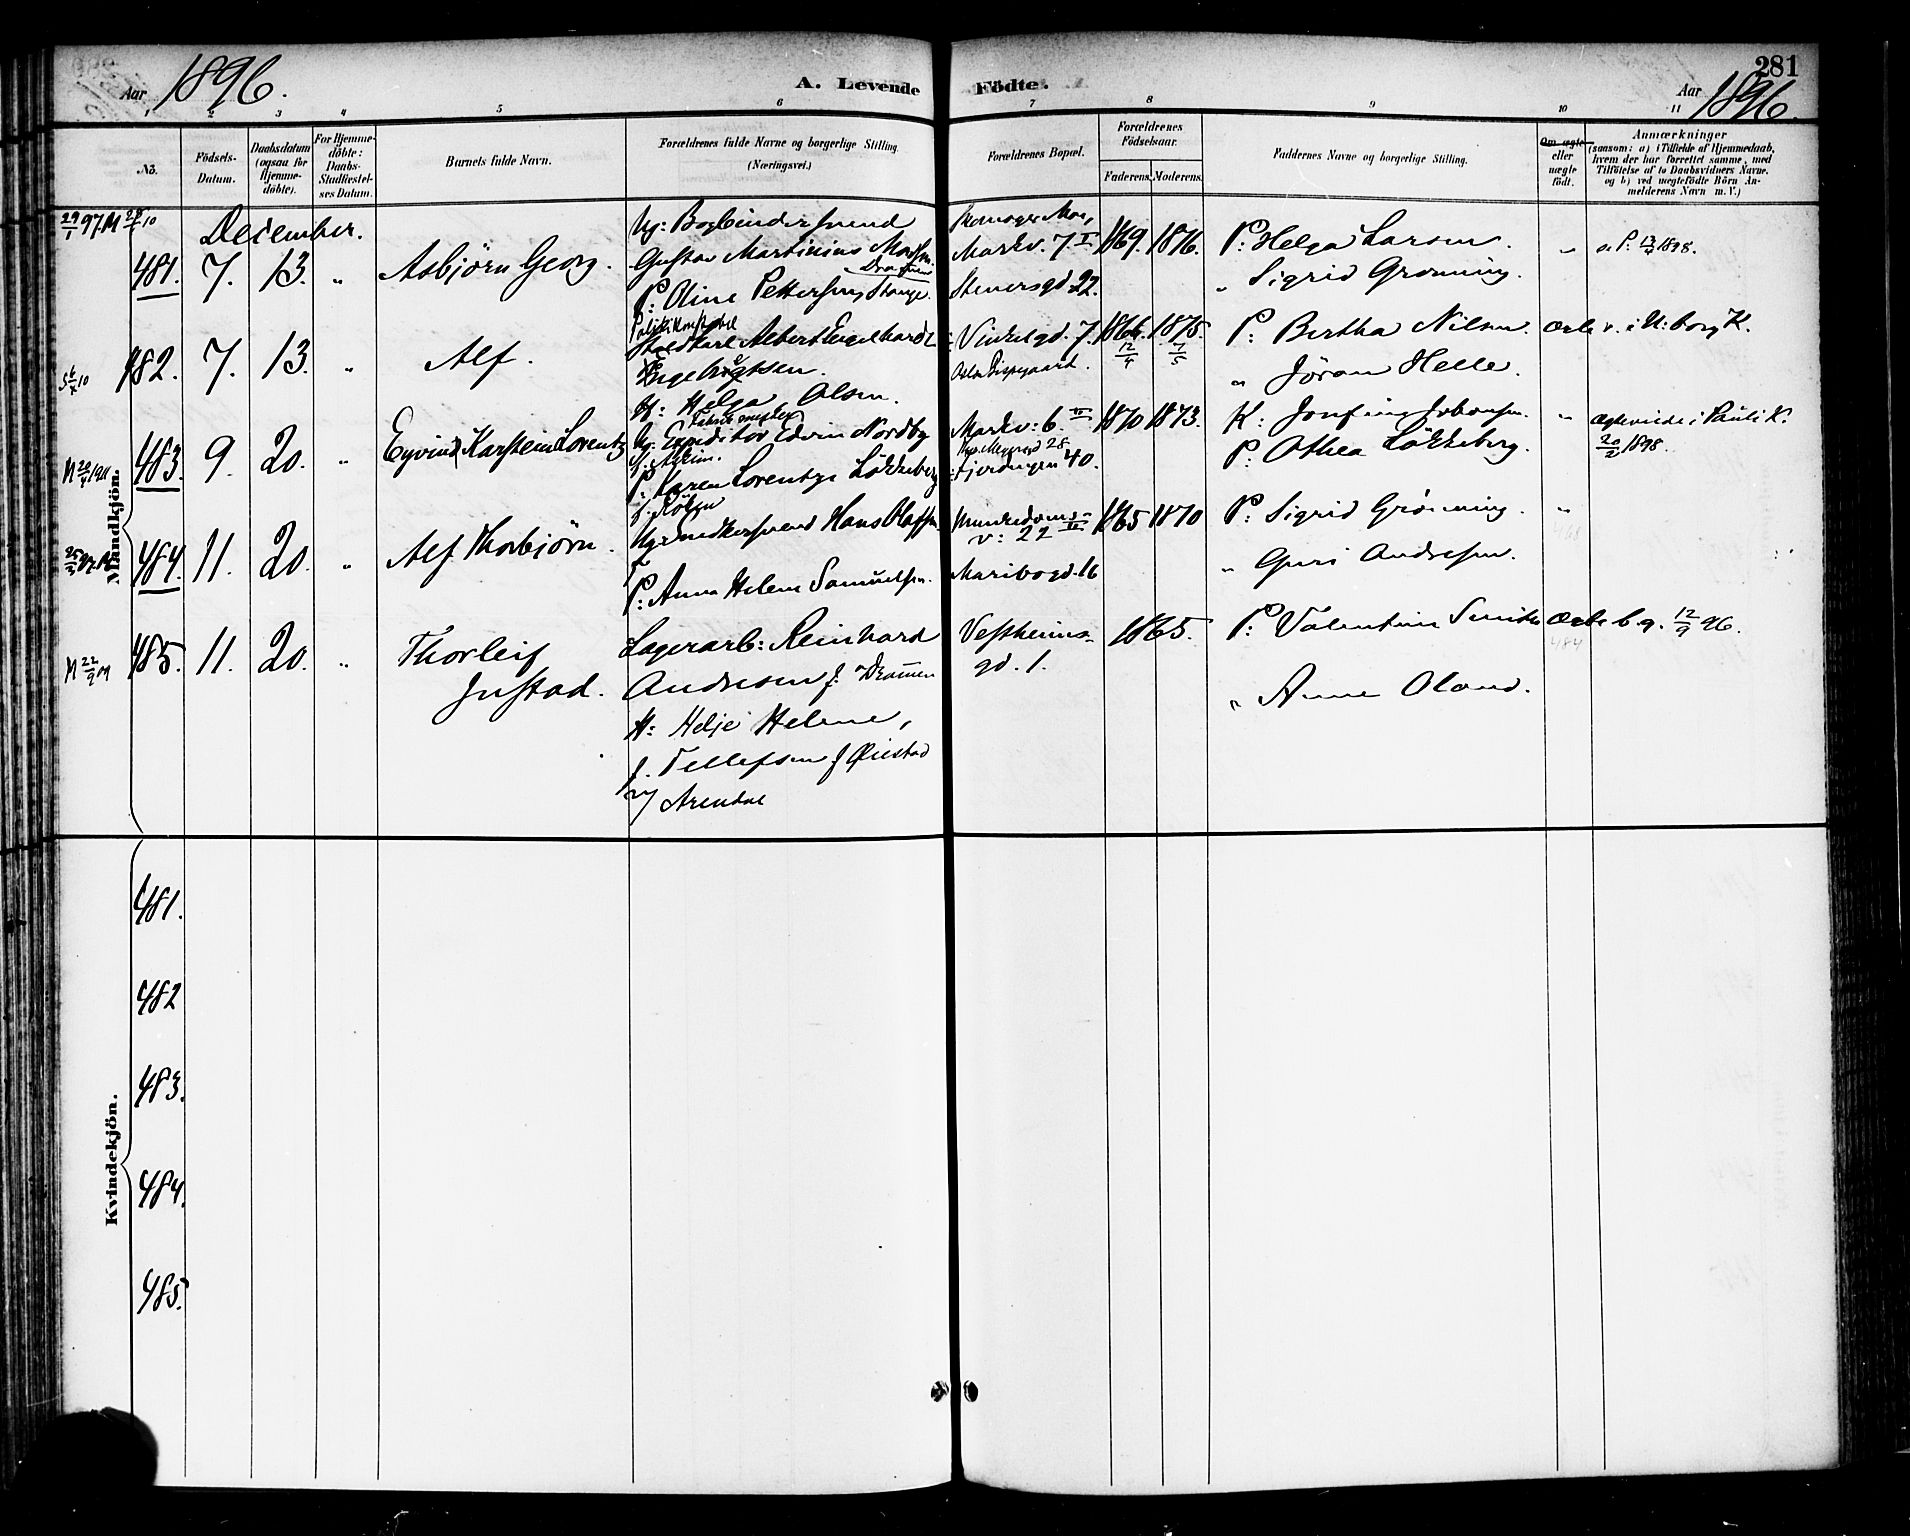 281
Aar 1896.
A. Levende Födte.
Aar 1896.
1 2 3 4 5 6 7 8 9 10 11
No.
Födsels-Datum.
Daabsdatum (ogsaa for Hjemmedöbte).
For Hjemmedöbte: Daabs-Stadfæstelses Datum.
Barnets fulde Navn.
Forældrenes fulde Navne og borgerlige Stilling. (Næringsvei.)
Forældrenes Bopæl.
Forældrenes Födselsaar.
Faderens. Moderens.
Faddernes Navne og borgerlige Stilling.
Om ægte eller uægte födt.
Anmærkninger
(saasom: a) i Tilfælde af Hjemmedaab,
hvem der har forrettet samme, med
Tilföielse af to Daabsvidners Navne.
og b) ved uægtefödte Börn Anmelderens Navn m. V.)
Mandkjön.
December.
481. 7. 13. " Asbjørn Georg.
Ug: Bogbindersvend
Gustav Martinius
P: Oline Pettersen, Stange.
Markv. 7. II
Stenersgd. 22.
1869. 1876.
P: Helga Larsen.
" Sigrid Grønning.
"
482. 7. 13. " Alf.
Politikonstabel
Staldkarl Albert Engelhardt
Engebrigtsen.
H: Helga Olsen.
Vinkelgd. 7.
Oslo Bispegaard.
1866. 12/4
1875. 7/5
P: Bertha Nilsen.
" Jöran Helle.
Ægte
483. 9. 20. " Eyvind Karstein Lorentz
Ug: Expeditör Edvin Nordby
P: Karen Lorentze Løkkeberg
Markv: 6. III
Fjerdingen 40.
1870 1873.
P: Othea Løkkeberg.
"
i Pauli K.
20/2 1898.
484. 11. 20. " Alf Thorbjörn.
P: Anna Helene Samuelsen.
Munkedams-
v: 22 II
Maribogd. 16
1865 1870
P: Sigrid Grönning.
" Guri Andresen.
"
485. 11. 20. " Thorleif
Justad.
Lagerarb: Reinhard
Andresen f. Drammen
H: Helje Helene,
f. Tellefsen f Øiestad
v/ Arendal
Vestheims-
gd. 1.
1865.
P: Valentine Smith
" Anne Oland.
Ægte
b. g. 12/9 96.
Kvindekjön.
481.
482
483.
484.
485.